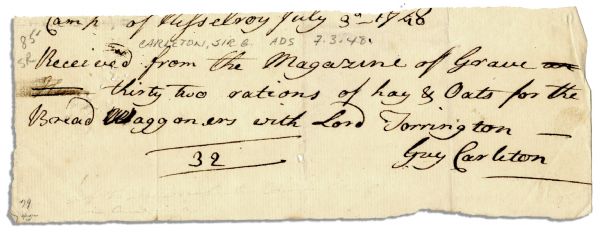 Camp of Nisselroy July 3d 1748
CARLETON, SIR G. ADS 7.3.48.
Received from the Magazine of Grave
thirty two rations of hay & Oats for the
Bread Waggoners with Lord Torrington
32
Guy Carleton